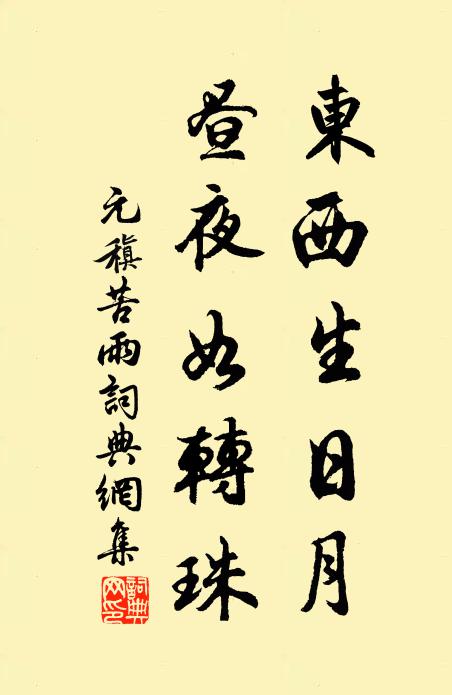 東西生日月
昼夜如轉珠
元稹苦雨詞典網集
詞典網印